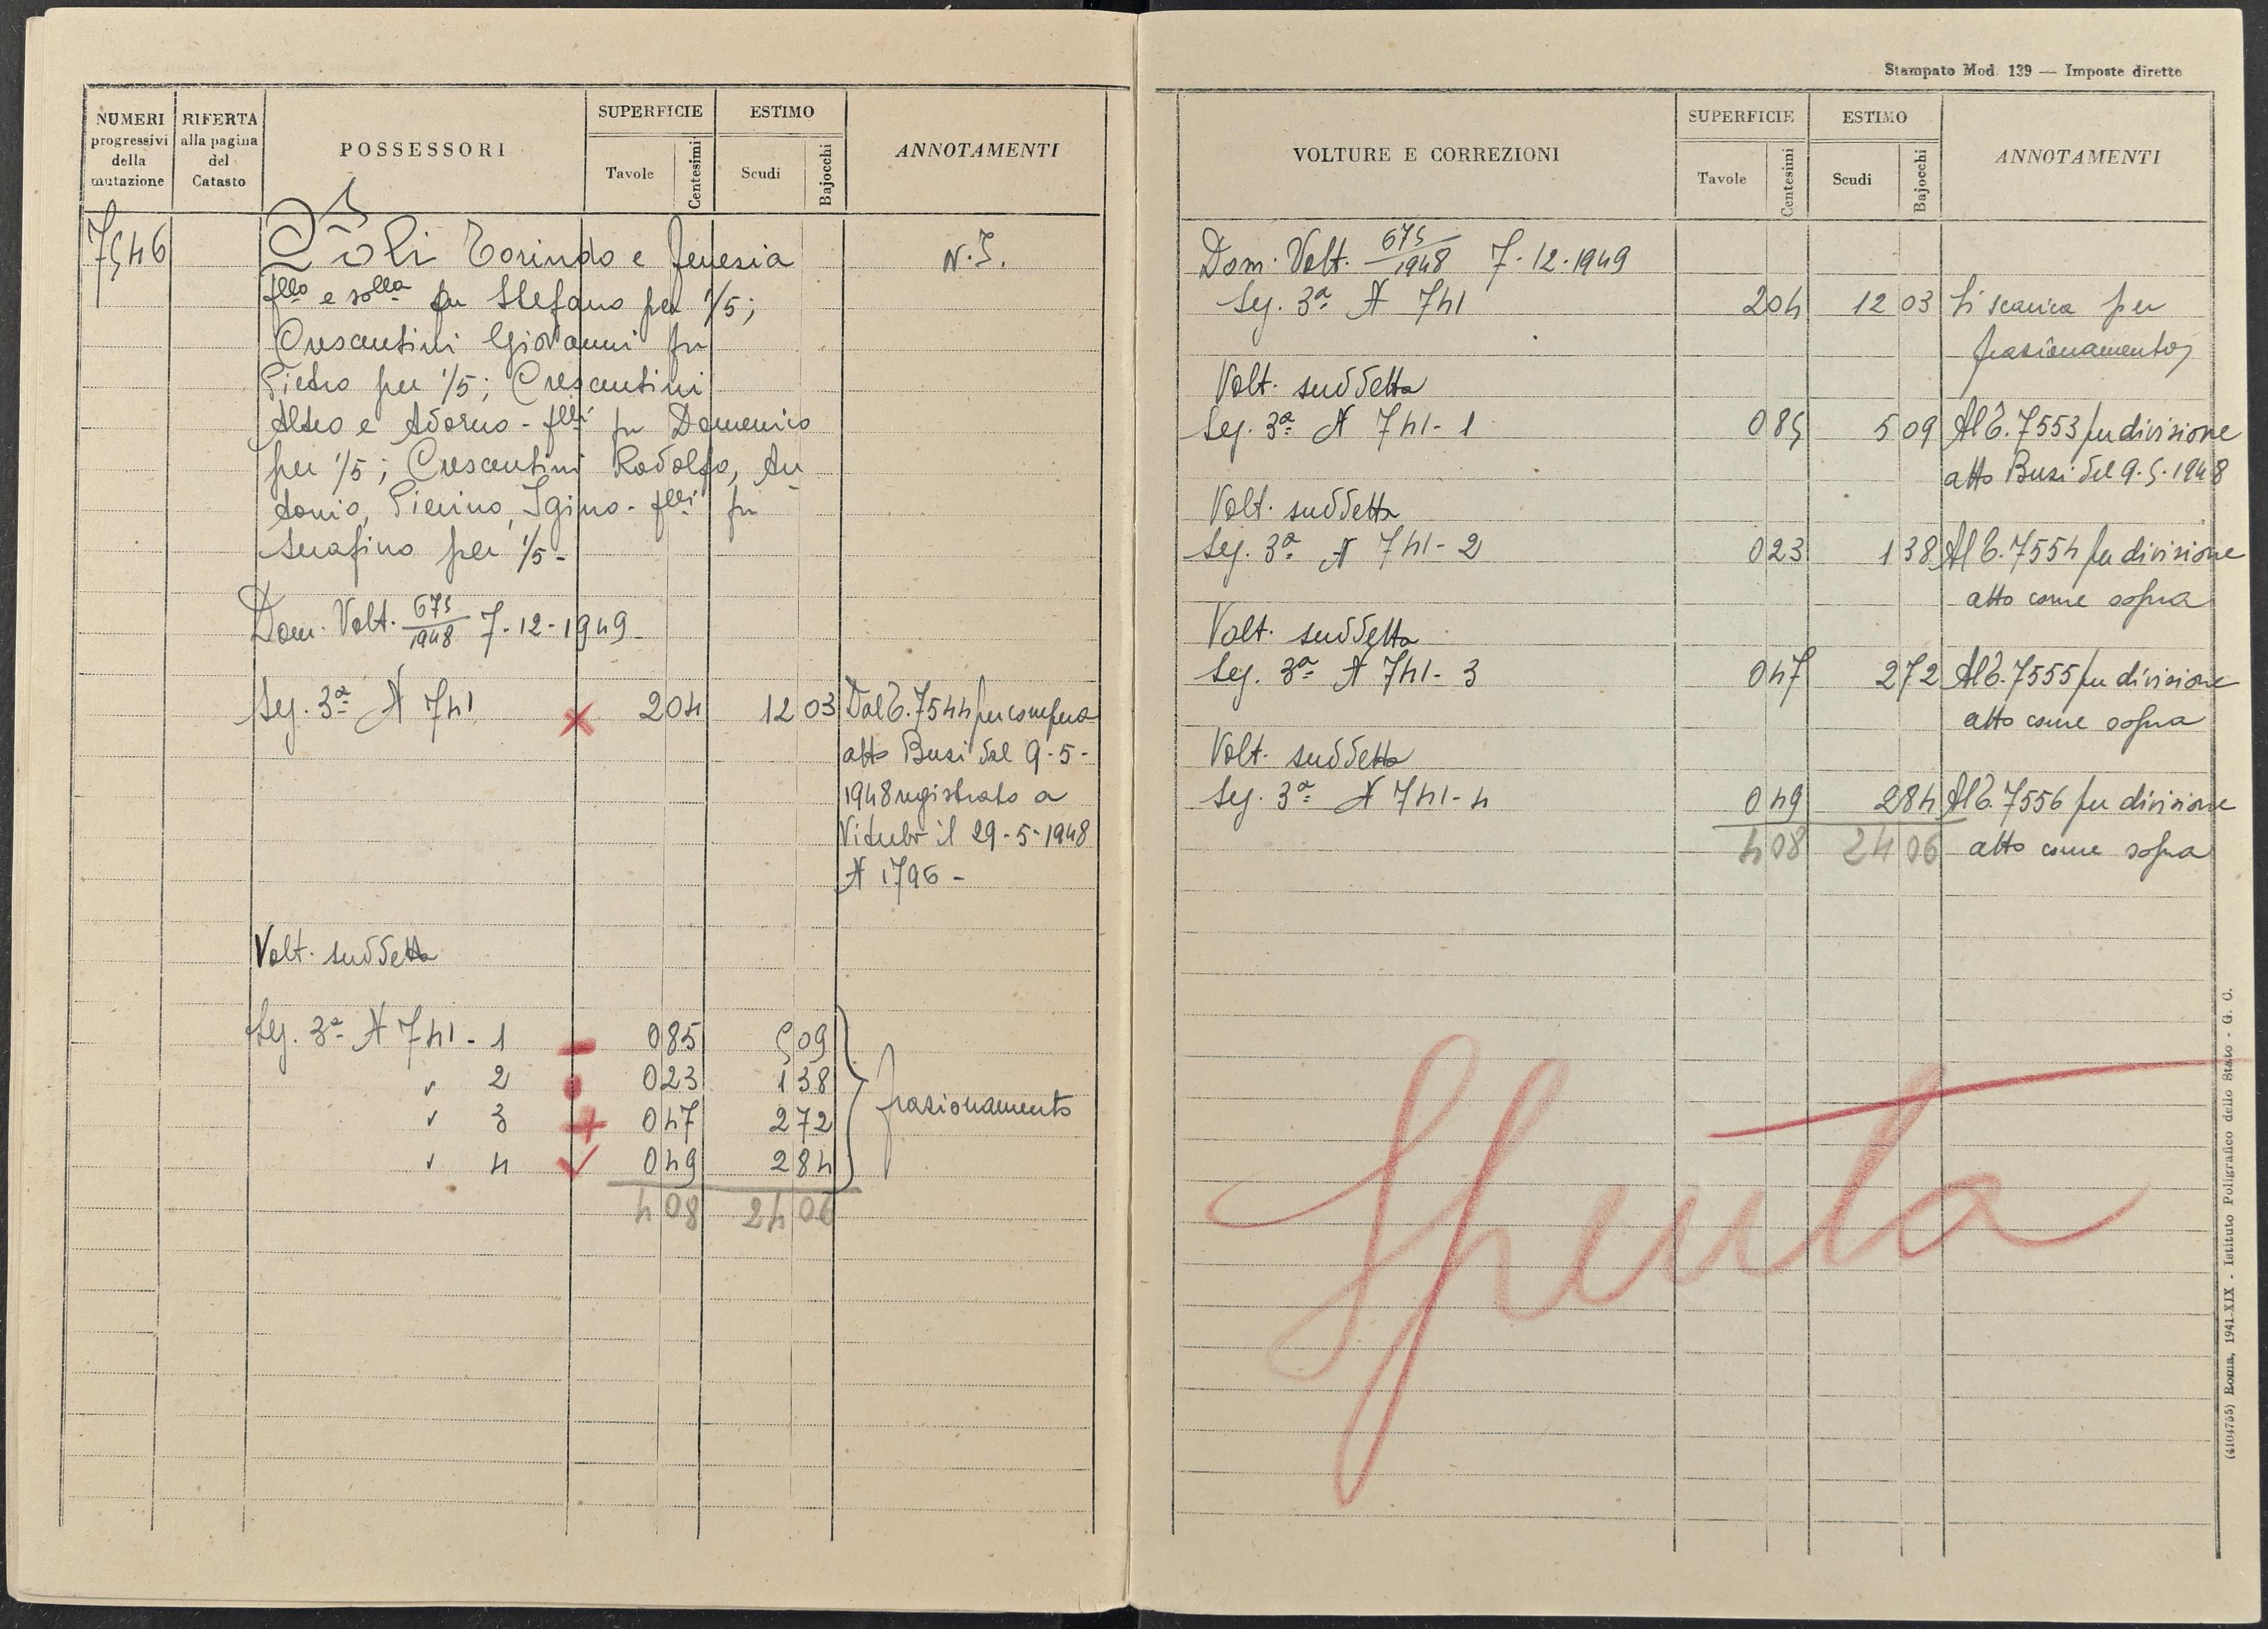 Stampato Mod. 139 — Imposte dirette
NUMERI progressivi della mutazione
RIFERTA alla pagina del Catasto
POSSESSORI
SUPERFICIE
Tavole
Centesimi
ESTIMO
Scudi
Bajocchi
ANNOTAMENTI
7546
Torindo e
N.I.
fllo e solla fu Stefano per 1/5;
Crescentini Giovanni fu
Pietro per 1/5; Crescentini
Alteo e Adorno - flli fu Domenico
per 1/5; Crescentini Rodolfo, An
tonio, Pierino, Igino - flli fu
Serafino per 1/5 -
Dom. Volt. 675/1948 7-12-1949
Sez. 3ª N 741 204 12 03 Dal C. 7544 per compera
atto Busi del 9-5-
1948 registrato a
Viterbo il 29-5-1948
N 1796 -
Volt. suddetta
Sez. 3ª N 741 - 1 0 85 5 09
" 2 0 23 1 38
" 3 0 47 2 72
" 4 0 49 2 84
frazionamento
4 08 24 06
VOLTURE E CORREZIONI
SUPERFICIE
Tavole
Centesimi
ESTIMO
Scudi
Bajocchi
ANNOTAMENTI
Dom. Volt. 675/1948 7-12-1949
Sez. 3ª N 741 204 12 03 Si scarica per
frazionamento
Volt. suddetta
Sez. 3ª N 741 - 1 0 85 5 09 Al C. 7553 per divisione
atto Busi del 9-5-1948
Volt. suddetta
Sez. 3ª N 741 - 2 0 23 1 38 Al C. 7554 per divisione
atto come sopra
Volt. suddetta
Sez. 3ª N 741 - 3 0 47 2 72 Al C. 7555 per divisione
atto come sopra
Volt. suddetta
Sez. 3ª N 741 - 4 0 49 2 84 Al C. 7556 per divisione
4 08 24 06 atto come sopra
Spenta
(4104755) Roma, 1941-XIX - Istituto Poligrafico dello Stato - G. C.